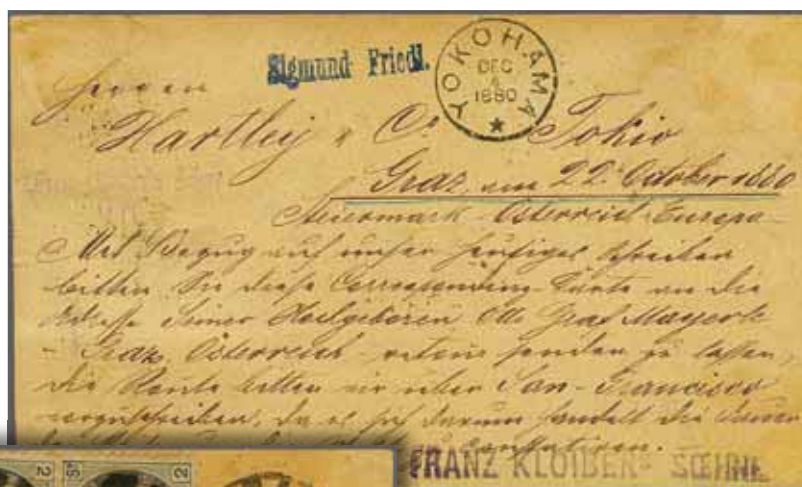 Sigmund Friedl.
YOKOHAMA
DEC
4
1880
Herren
Hartley & Co Tokio
Graz, am 22. October 1880
Steiermark - Österreich - Europa
Mit Bezug auf unser heutiges Schreiben
bitten Sie diese Correspondenz-Karte an die
Adresse Seiner Hochgeboren Graf
- Graz, Österreich - retour senden zu lassen,
die Route bitten wir über San-Francisco
vorzuschreiben, da es sich darum handelt die
FRANZ KLOIBER SOEHNE